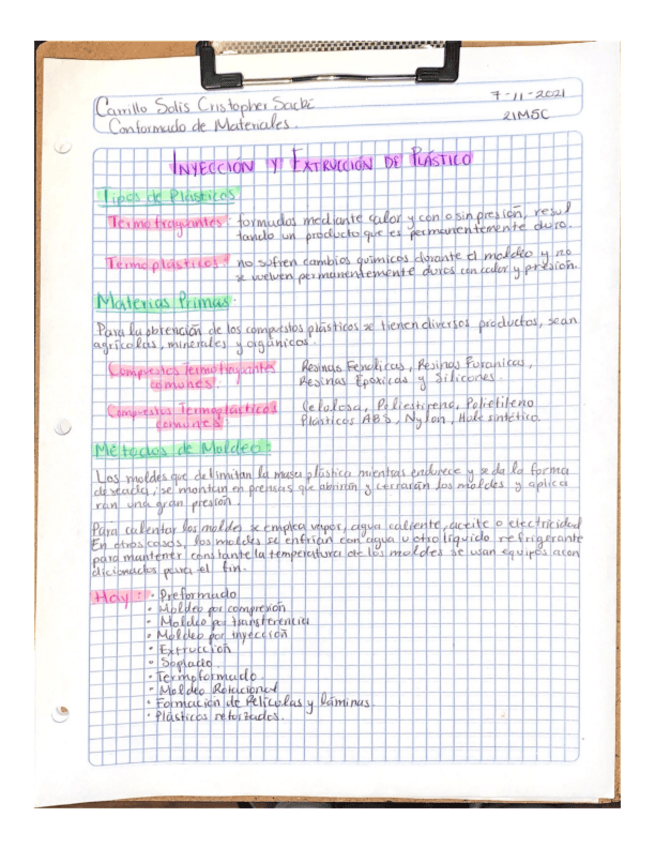 Carrillo Solis Cristopher Sacbe
7-11-2021
Conformado de Materiales.
21M5C
INYECCION Y EXTRUCCIÓN DE PLÁSTICO
Tipos de Plasticos
Termofraguantes: formados mediante calor y con o sin presión, resul
tando un producto que es permanentemente duro.
Termoplásticos: no sufren cambios químicos durante el moldeo y no
se vuelven permanentemente duros con calor y presión.
Materias Primas:
Para la obtención de los compuestos plásticos se tienen diversos productos, sean
agrícolas, minerales y orgánicos.
Compuestos Termofraguantes Resinas Fenolicas, Resinas Furanicas,
comunes: Resinas Epoxicas y Silicones.
Compuestos Termoplasticos Celulosa, Poliestireno, Polietileno
comunes: Plasticos ABS, Nylon, Hule sintético.
Métodos de Moldeo:
Los moldes que delimitan la masa plástica mientras endurece y se da la forma
deseada, se montan en prensas que abrirán y cerrarán los moldes y aplica
ran una gran presión.
Para calentar los moldes se emplea vapor, agua caliente, aceite o electricidad
En otros casos, los moldes se enfrían con agua u otro líquido refrigerante
para mantener constante la temperatura de los moldes se usan equipos acon
dicionados para el fin.
Hay: • Preformado
• Moldeo por compresión
• Moldeo por transferencia
• Moldeo por inyección
• Extrucción
• Soplado
• Termoformado.
• Moldeo Rotacional
• Formacion de Peliculas y láminas.
• Plásticos reforzados.